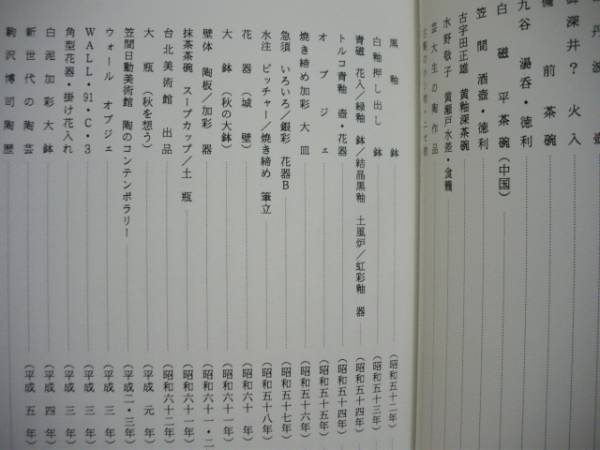 丹波　壺
御深井?　火入
備前　茶碗
九谷　湯呑・徳利
白磁　平茶碗(中国)
笠間　酒壺・徳利
古宇田正雄　黄釉深茶碗
水野敬子　黄瀬戸水差・食籠
芸大生の陶作品
黒釉　鉢 (昭和五十二年)
白釉押し出し　鉢 (昭和五十三年)
青磁　花入/緑釉　鉢/結晶黒釉　土風炉/虹彩釉　器 (昭和五十四年)
トルコ青釉　壺・花器 (昭和五十四年)
オブジェ (昭和五十五年)
焼き締め加彩　大皿 (昭和五十六年)
急須　いろいろ/銀彩　花器B (昭和五十七年)
水注　ピッチャー/焼き締め　筆立 (昭和五十八年)
花器(城壁) (昭和六十年)
大鉢(秋の大鉢) (昭和六十一年)
壁体　陶板/加彩　器 (昭和六十一・二
抹茶茶碗　スープカップ/土瓶 (昭和六十一年)
台北美術館　出品 (昭和六十二年)
大瓶(秋を想う) (平成元年)
笠間日動美術館　陶のコンテンポラリー (平成二・三年)
ウォール　オブジェ (平成三年)
WALL・91・C・3 (平成三年)
角型花器・掛け花入れ (平成三年)
白泥加彩大鉢 (平成四年)
新世代の陶芸 (平成五年)
駒沢博司陶歴